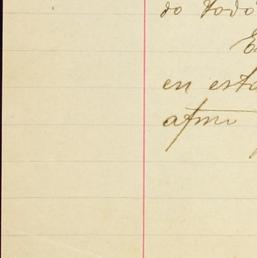 do todo
E
en esta
afmi